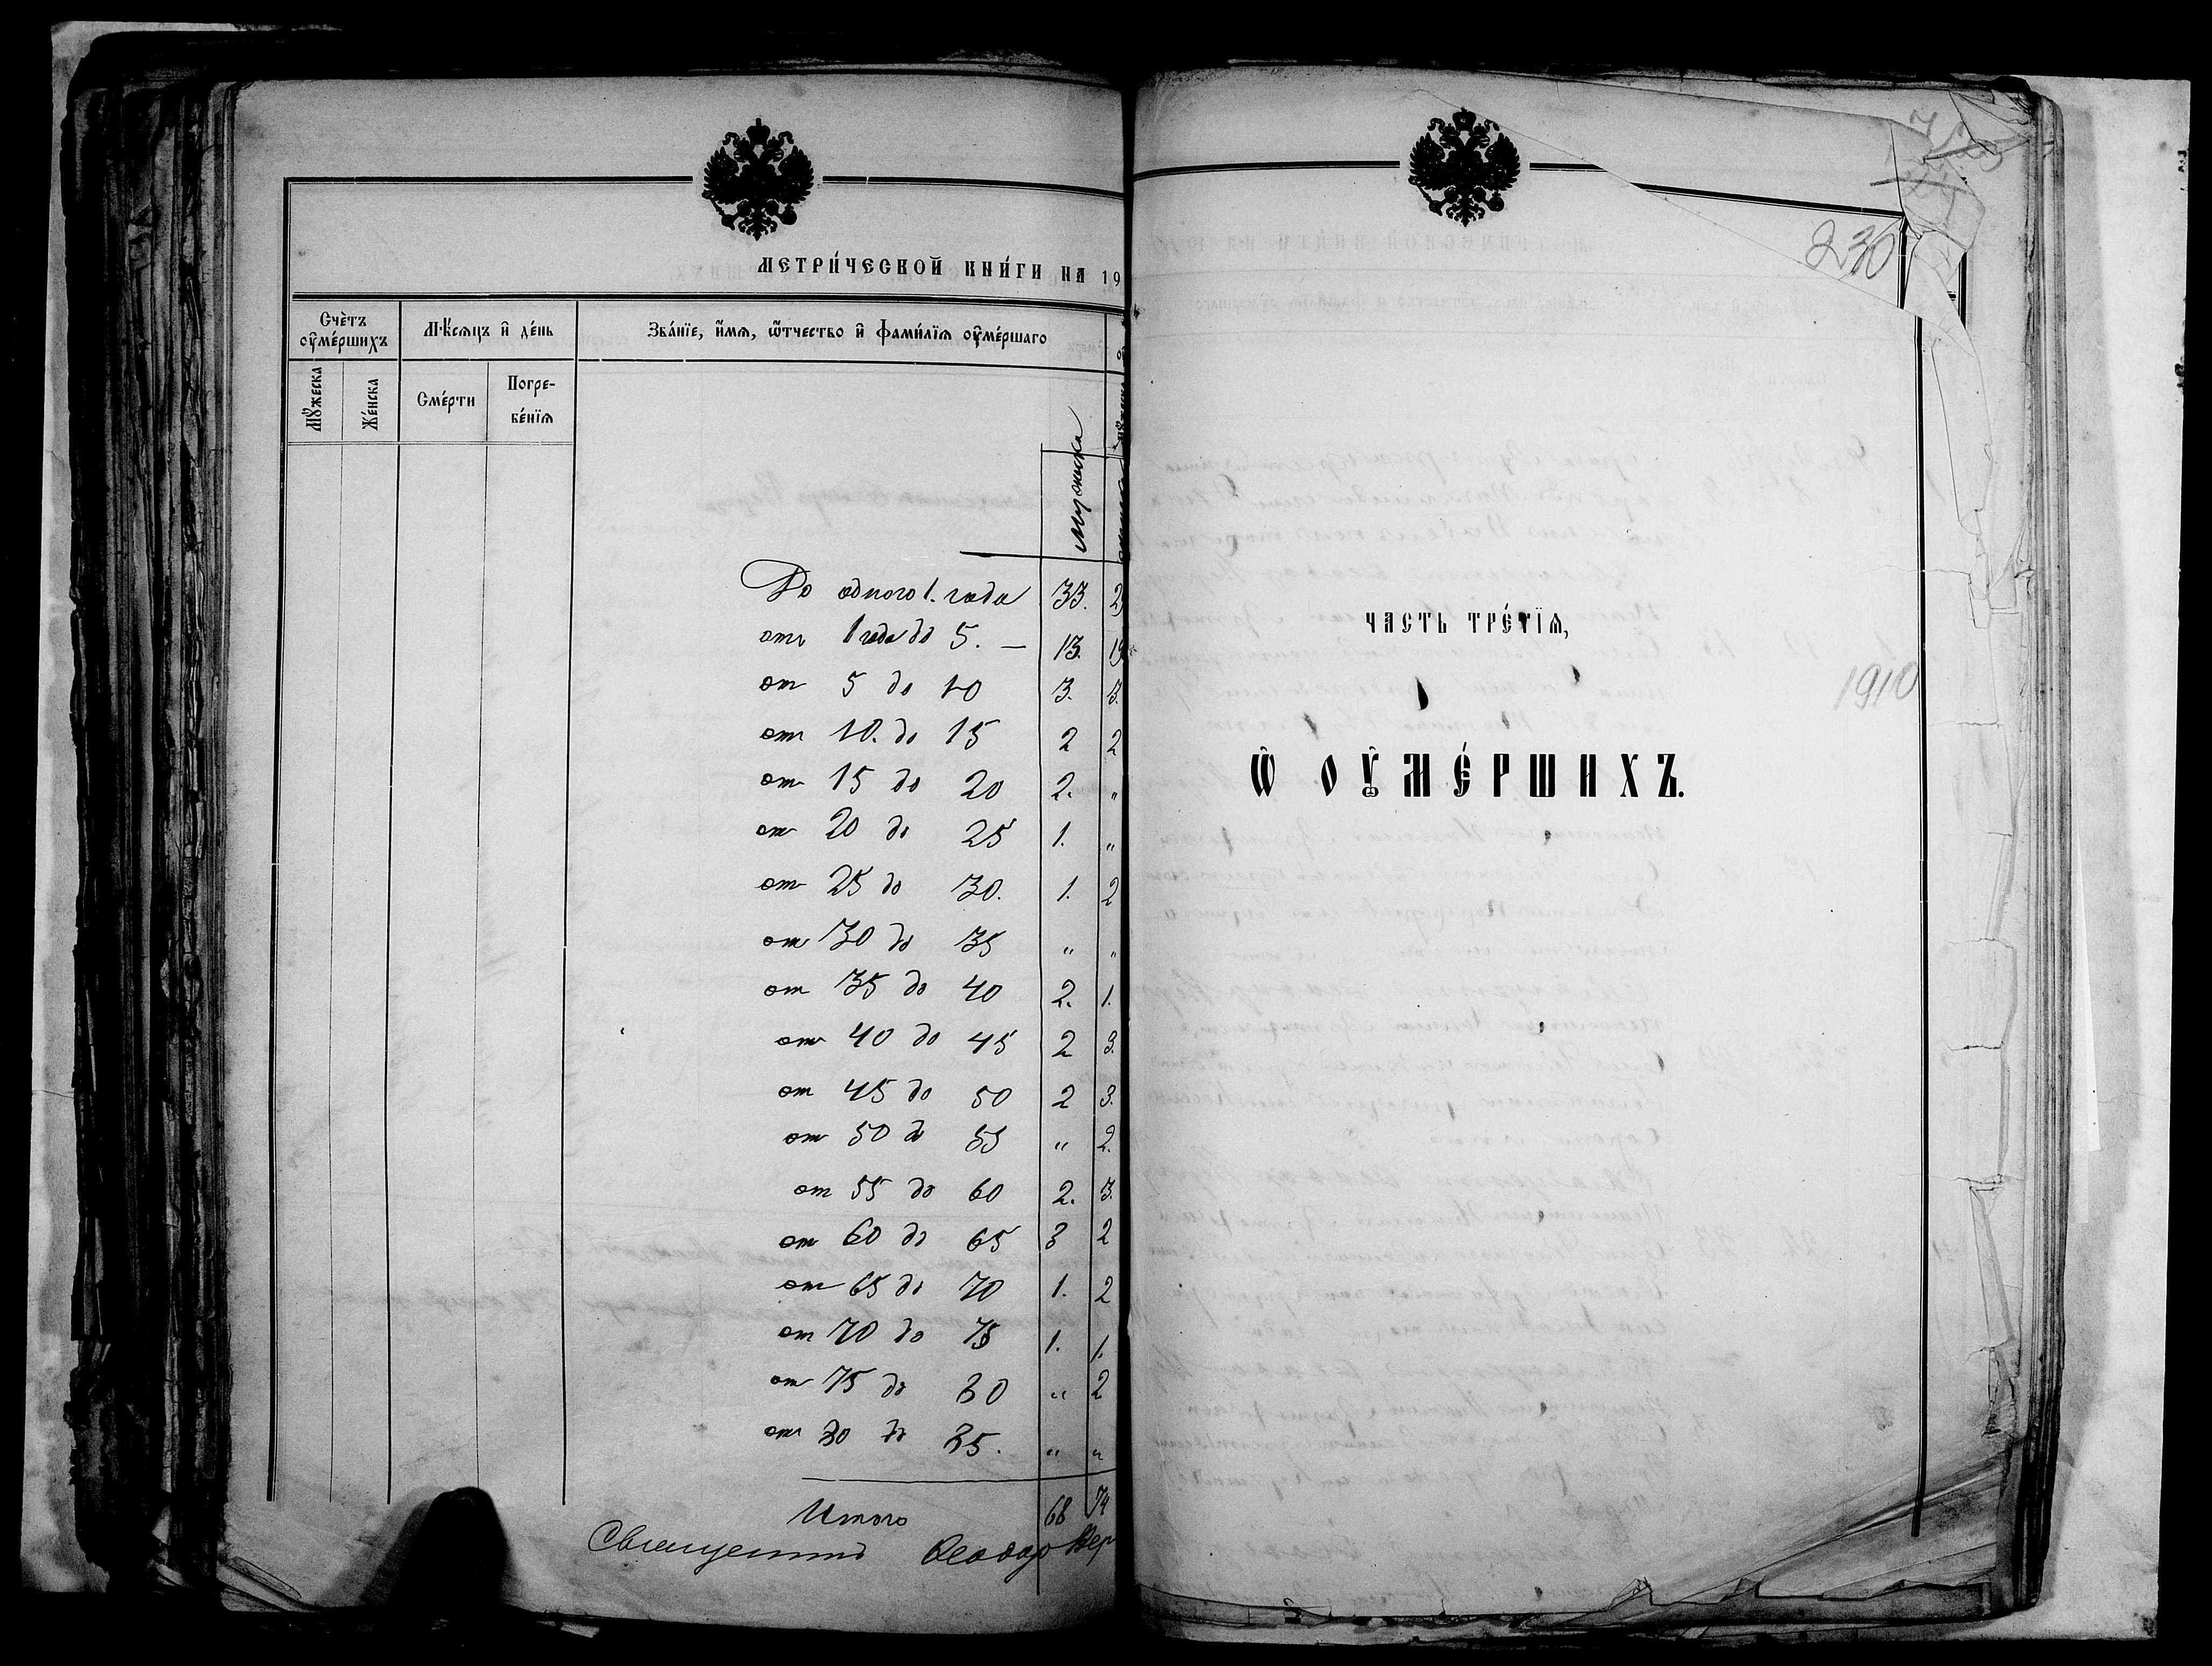 МЕТРИ́ЧЕСКОЙ КНИ́ГИ НА 19
Счѐтъ ᲂу҆ме́ршихъ
Мѣ́сяцъ и҆ де́нь
Зва́нїе, и҆́мя, ѻ҆́тчество и҆ фами́лїя ᲂу҆ме́ршаго
Мꙋ́жеска
Же́нска
Сме́рти
Погре-
бе́нїѧ
Мужеска
До одного 1. года 33. 2
отъ 1 года до 5. — 13. 19
от 5 до 10 3. 3.
от 10. до 15 2 2
от 15 до 20 2. "
от 20 до 25 1. "
от 25 до 30. 1. 2
от 30 до 35 " "
от 35 до 40 2. 1.
от 40 до 45 2 3.
от 45 до 50 2 3.
от 50 до 55 " 2.
от 55 до 60 2. 3.
от 60 до 65 3 2
от 65 до 70 1. 2
от 70 до 75 1. 1.
от 75 до 80 " 2
от 80 до 85. " "
Итого 68 74
Священникъ Ѳеодор
230
ЧАСТЬ ТРЕ́ТЇѦ,
1910
Ѡ҆ ОУ҆МЕ́РШИХЪ.